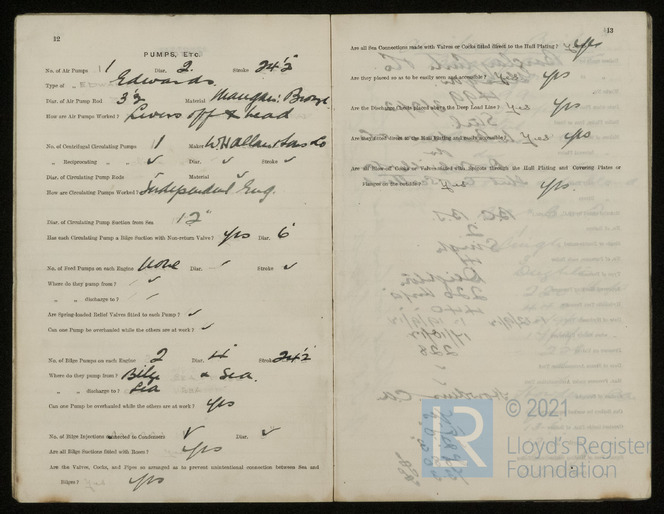 12
PUMPS, ETC.
No. of Air Pumps 1 Diar. 2. Stroke 24½"
Type of Edwards
Diar. of Air Pump Rod 3½ Material Mangan: Bronze
How are Air Pumps Worked? Levers off head
No. of Centrifugal Circulating Pumps 1 Maker W H Allan Sons Co
" Reciprocating " " ✓ Diar. ✓ Stroke ✓
Diar. of Circulating Pump Rods Material ✓
How are Circulating Pumps Worked? Independent Eng.
Diar. of Circulating Pump Suction from Sea 12"
Has each Circulating Pump a Bilge Suction with Non-return Valve? Yes Diar. 6"
No. of Feed Pumps on each Engine None Diar. ✓ Stroke ✓
Where do they pump from? ✓
" " discharge to? ✓
Are Spring-loaded Relief Valves fitted to each Pump? ✓
Can one Pump be overhauled while the others are at work? ✓
No. of Bilge Pumps on each Engine 2 Diar. 4" Stroke 24½
Where do they pump from? Bilge & Sea.
" " discharge to? Sea
Can one Pump be overhauled while the others are at work? Yes
No. of Bilge Injections connected to Condensers ✓ Diar. ✓
Are all Bilge Suctions fitted with Roses? Yes
Are the Valves, Cocks, and Pipes so arranged as to prevent unintentional connection between Sea and
Bilges? Yes
13
Are all Sea Connections made with Valves or Cocks fitted direct to the Hull Plating? Yes
Are they placed so as to be easily seen and accessible? Yes
Are the Discharge Chests placed above the Deep Load Line? Yes
Are they fitted direct to the Hull Plating and easily accessible? Yes
Are all Blow-off Cocks or Valves fitted with Spigots through the Hull Plating and Covering Plates or
Flanges on the outside? Yes.
© 2021
LR
Lloyd's Register
Foundation